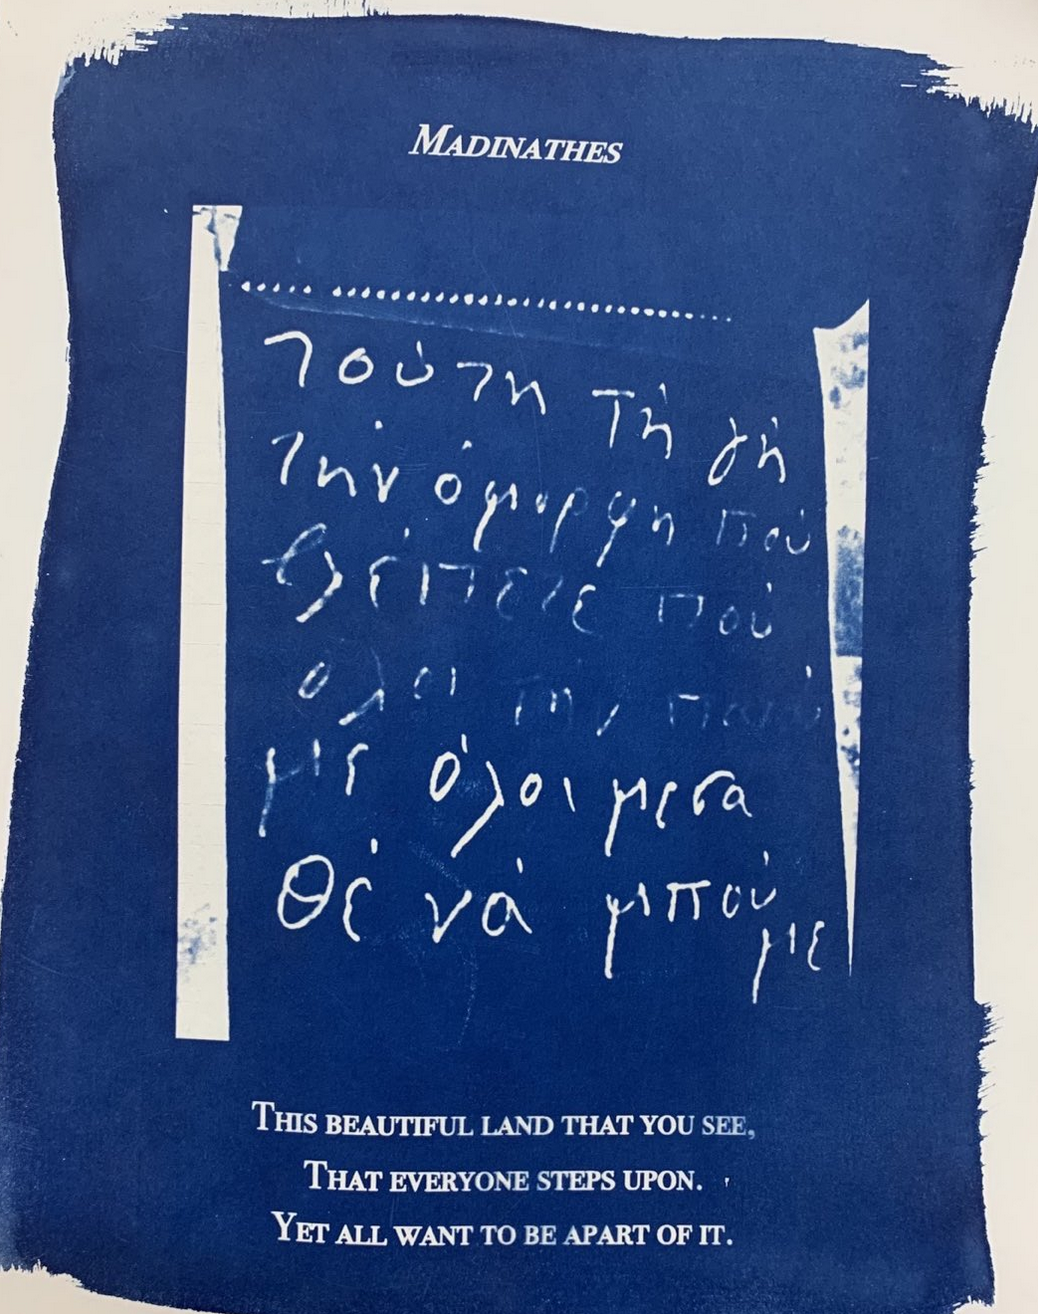 MADINATHES
Τούτη τή γή
τήν όμορφη πού
βλέπετε πού
όλοι τήν πατού
με όλοι μεσα
θέ νά μπού
με
THIS BEAUTIFUL LAND THAT YOU SEE,
THAT EVERYONE STEPS UPON.
YET ALL WANT TO BE APART OF IT.